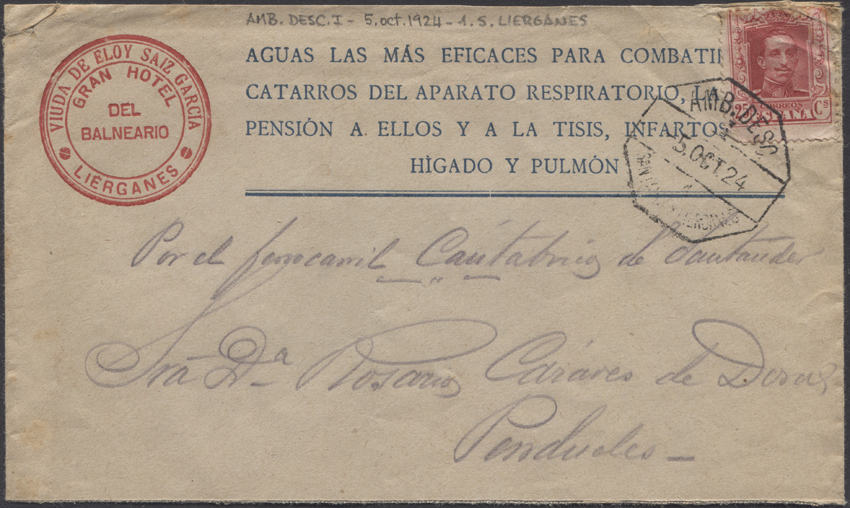 AMB. DESC. I - 5. oct. 1924 - 1. S. LIERGANES
VIUDA DE ELOY SAIZ GARCIA
GRAN HOTEL
DEL
BALNEARIO
LIÉRGANES
AGUAS LAS MÁS EFICACES PARA COMBATI
CATARROS DEL APARATO RESPIRATORIO,
PENSIÓN A ELLOS Y A LA TISIS, INFARTOS
HÌGADO Y PULMÓN
CORREOS
Cs
AMB. DESC
5. OCT. 24
1
Por el ferrocarril Cantabrico de Santander
Sra Da Rosario de
Pendueles